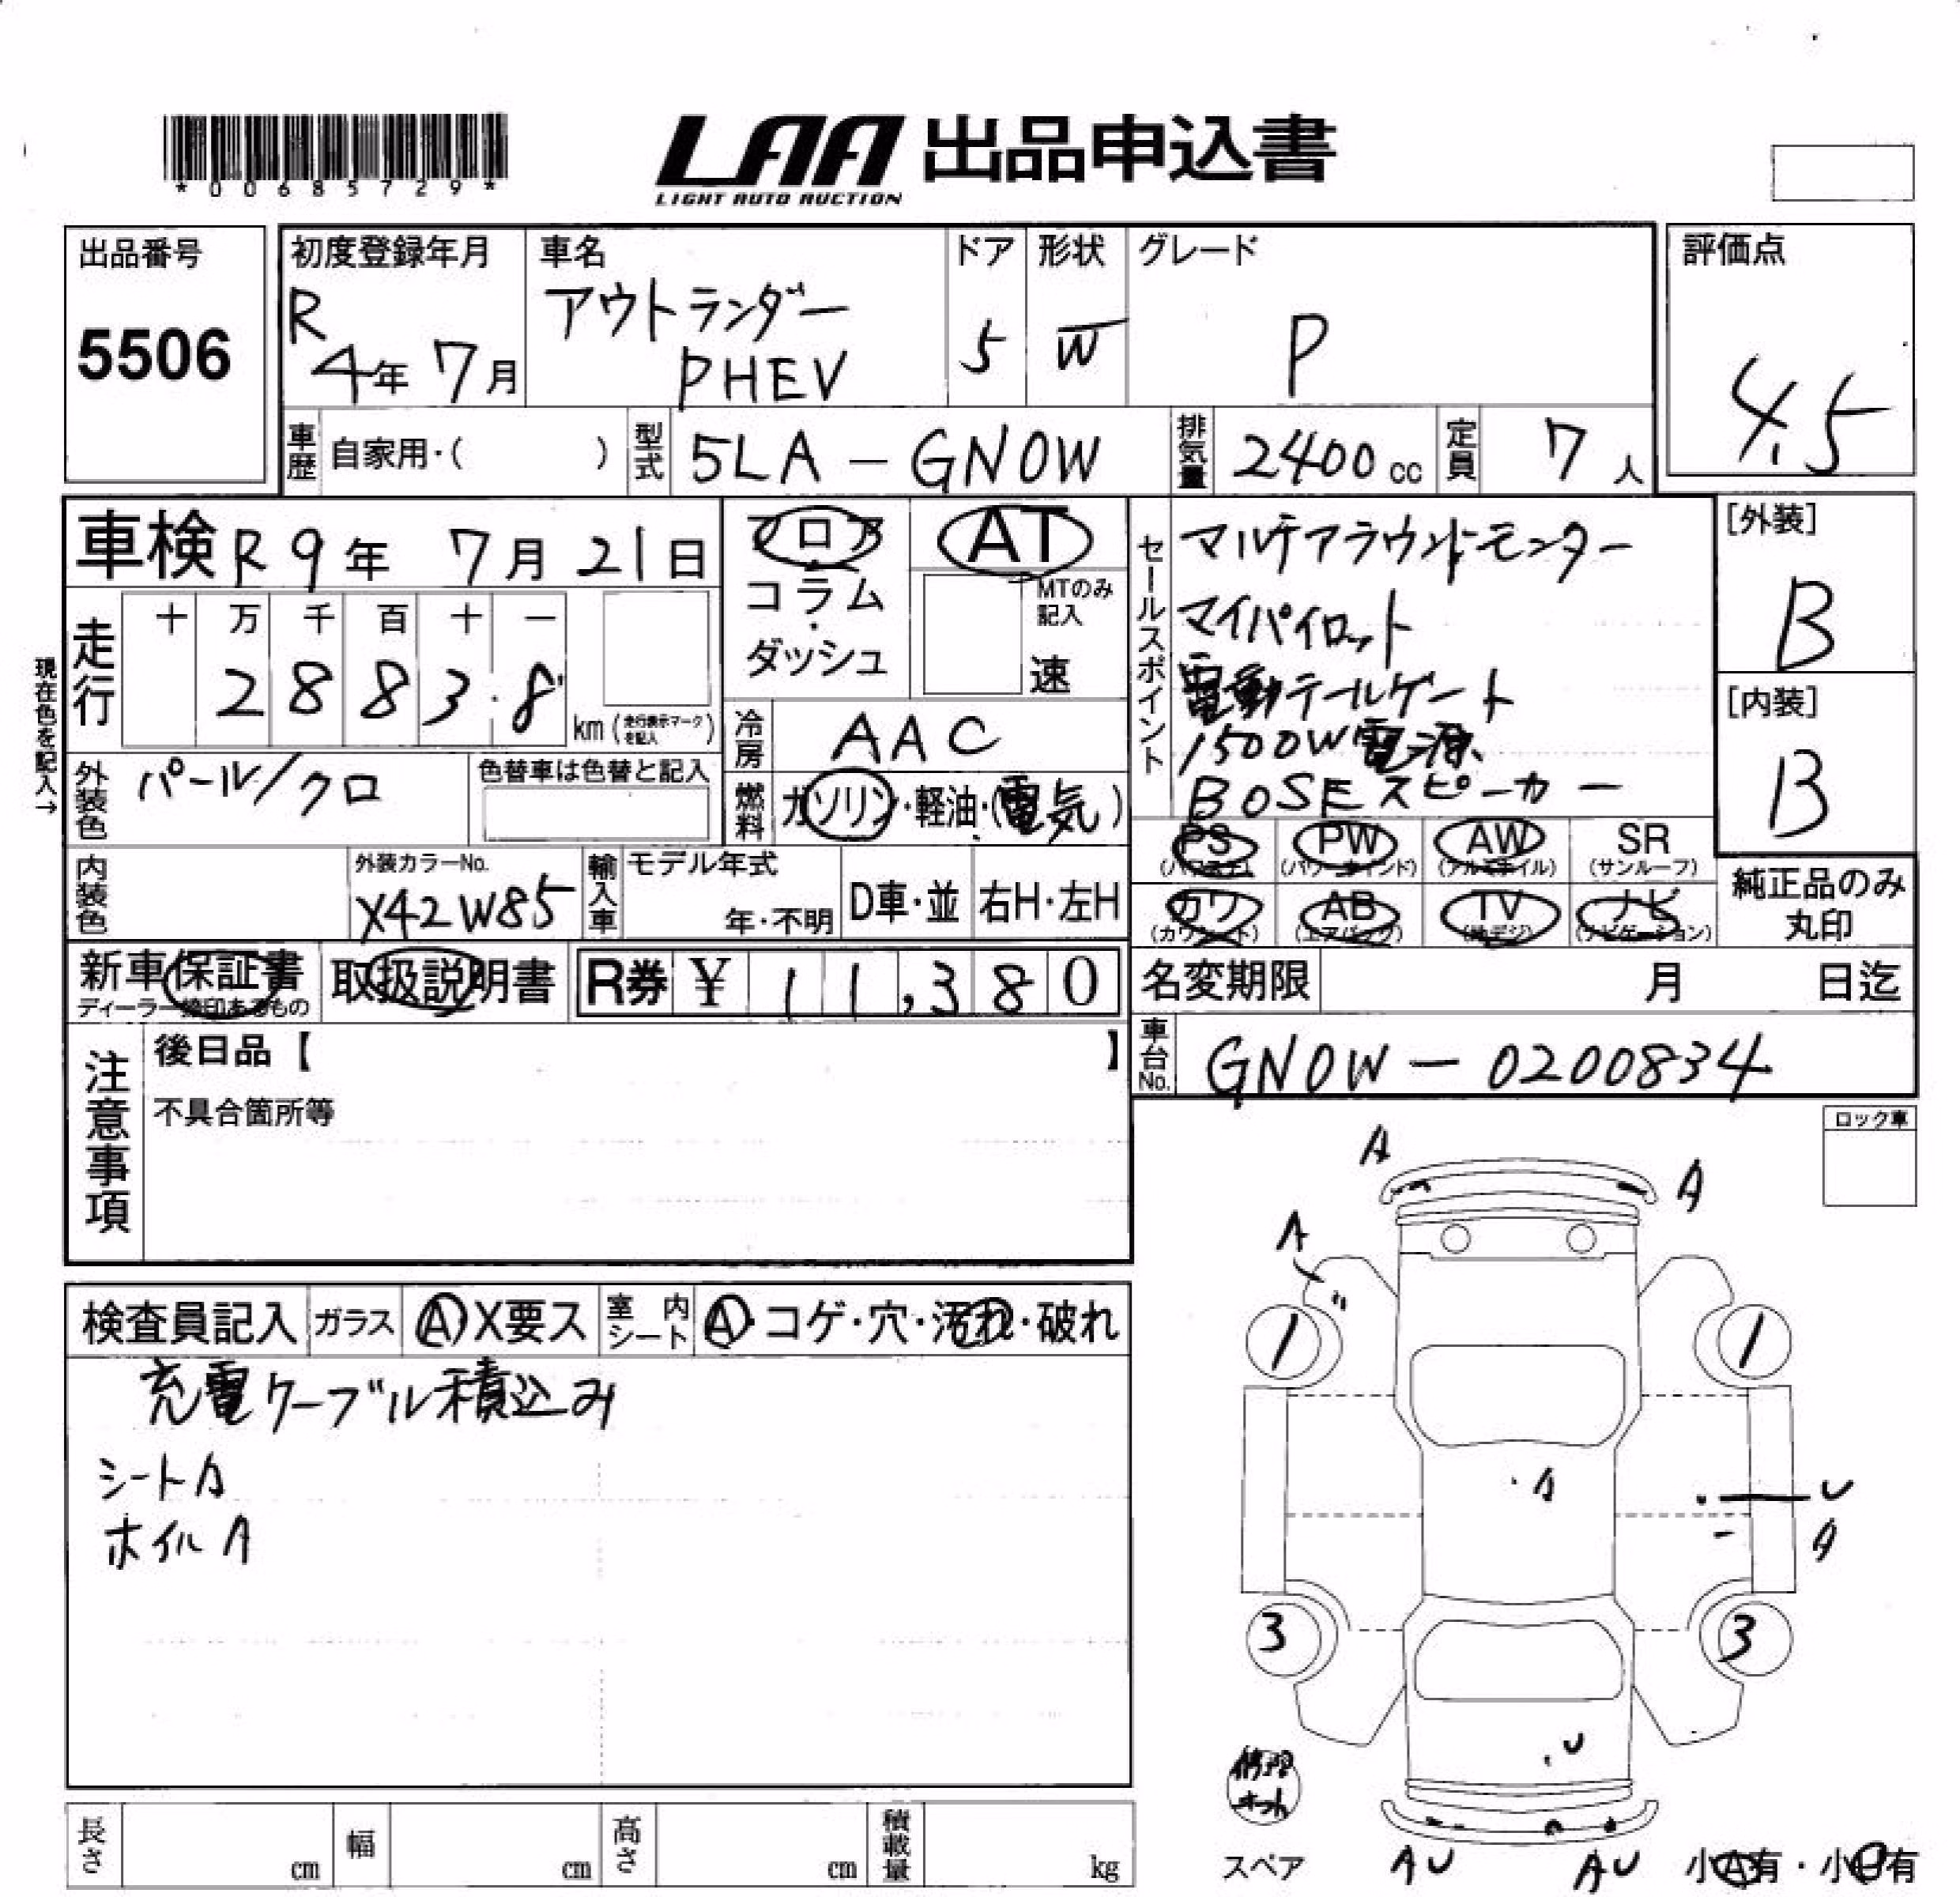 *00685729*
LAA 出品申込書
LIGHT AUTO AUCTION
出品番号
5506
初度登録年月
R
4年 7月
車名
アウトランダー
PHEV
ドア
5
形状
W
グレード
P
評価点
4.5
車歴 自家用・( )
型式 5LA-GN0W
排気量 2400cc
定員 7人
車検 R9年 7月21日
フロア
コラム
・
ダッシュ
AT
MTのみ
記入
速
セールスポイント
マルチアラウンドモニター
マイパイロット
電動テールゲート
1500W電源
BOSEスピーカー
[外装]
B
[内装]
B
現在色を記入→
走行
十 万 千 百 十 一
2 8 8 3 8
km (走行表示マークを記入)
冷房 AAC
燃料 ガソリン・軽油・(電気)
外装色 パール/クロ
色替車は色替と記入
内装色
外装カラーNo.
X42W85
輸入車
モデル年式
年・不明
D車・並
右H・左H
PS
(パワステ)
PW
(パワーウィンド)
AW
(アルミホイル)
SR
(サンルーフ)
カワ
(カワシート)
AB
(エアバッグ)
TV
(地デジ)
ナビ
(ナビゲーション)
純正品のみ
丸印
新車保証書
取扱説明書
R券 ¥ 11,380
名変期限 月 日迄
車台No. GN0W-0200834
注意事項
後日品【 】
不具合箇所等
ロック車
検査員記入
ガラス A X要ス
室内シート A・コゲ・穴・汚れ・破れ
充電ケーブル積込み
シートA
ホイルA
A
A
A
1
1
A
U
A
3
3
U
修理
キット
スペア
AU
AU
小A有・小U有
長さ cm
幅 cm
高さ cm
積載量 kg